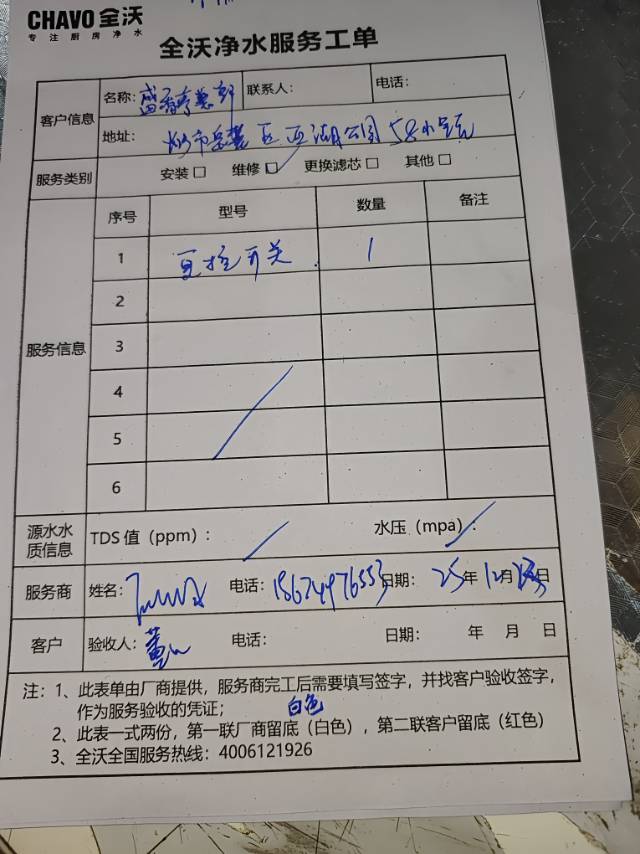 CHAVO 全沃
专注厨房净水
全沃净水服务工单
客户信息
名称： 联系人： 电话：
地址： 市岳麓区 公园58
服务类别 安装□ 维修□ 更换滤芯□ 其他□
服务信息
序号 型号 数量 备注
1 开关 1
2
3
4
5
6
源水水质信息
TDS 值（ppm）： 水压（mpa）：
服务商 姓名： 电话：18674976553 日期：25年12月 日
客户 验收人：董 电话： 日期： 年 月 日
注：1、此表单由厂商提供，服务商完工后需要填写签字，并找客户验收签字，
作为服务验收的凭证； 白色
2、此表一式两份，第一联厂商留底（白色），第二联客户留底（红色）
3、全沃全国服务热线：4006121926